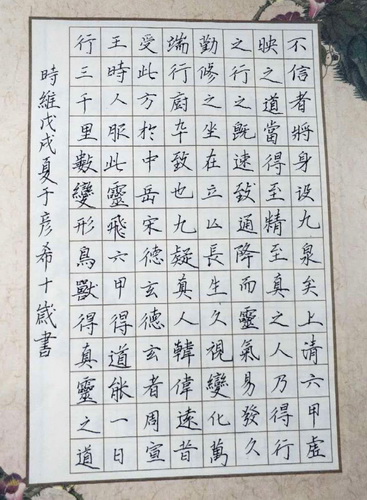 不信者將身没九泉矣上清六甲虛
映之道當得至精至真之人乃得行
之行之既速致通降而靈氣易發久
勤修之坐在立亡長生久視變化萬
端行廚卒致也九疑真人韓偉遠昔
受此方於中岳宋德玄德玄者周宣
王時人服此靈飛六甲得道能一日
行三千里數變形鳥獸得真靈之道
時維戊戌夏于彦希十歲書